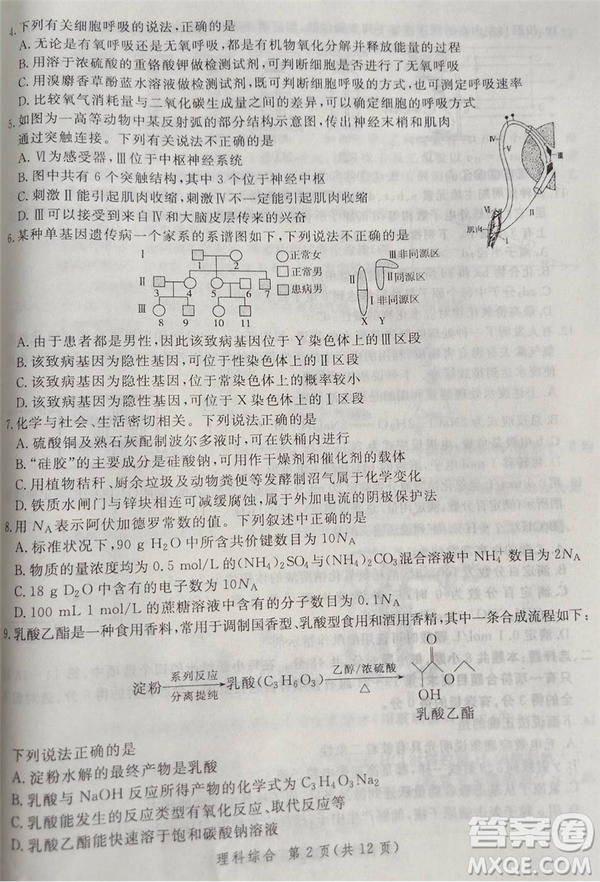 4.下列有关细胞呼吸的说法,正确的是
A.无论是有氧呼吸还是无氧呼吸,都是有机物氧化分解并释放能量的过程
B.用溶于浓硫酸的重铬酸钾做检测试剂,可判断细胞是否进行了无氧呼吸
C.用溴麝香草酚蓝水溶液做检测试剂,除了判断呼吸方式外,也可测定呼吸速率
D.比较氧气消耗量与二氧化碳生成量之间的差异,可以小鼠的呼吸方式
5.如图为一高等动物中某反射弧的部分结构示意图,传出神经末梢和肌肉
通过突触连接。下列有关说法不正确的是
A.Ⅵ为感受器,Ⅲ位于中枢神经系统
B.图中共有6个细胞,其中有4个属于神经细胞
C.刺激Ⅱ能引起肌肉收缩,刺激Ⅳ不一定能引起肌肉收缩
D.Ⅲ可以接受来自Ⅳ和大脑皮层传来的兴奋
Ⅳ
Ⅴ
Ⅱ
Ⅲ
Ⅵ
肌肉
Ⅰ
6.某种单基因遗传病一个家系的系谱图如下,下列说法不正确的是
Ⅰ
Ⅱ
Ⅲ
正常女
正常男
患病男
Ⅲ非同源区
Ⅱ同源区
Ⅰ非同源区
X Y
A.由于患者都是男性,因此该致病基因位于Y染色体上的Ⅲ区段
B.该致病基因为隐性基因,可位于性染色体上的Ⅱ区段
C.该致病基因为隐性基因,位于常染色体上的概率较小
D.该致病基因为隐性基因,可位于X染色体上的Ⅰ区段
7.化学与社会、生活密切相关。下列说法正确的是
A.硫酸铜及熟石灰配制波尔多液时,可在铁桶内进行
B.“硅胶”的主要成分是硅酸钠,可用作干燥剂和催化剂的载体
C.用植物秸秆、厨余垃圾及动物粪便等发酵制沼气属于化学变化
D.铁质水闸门与锌块相连可减缓腐蚀,属于金属的阴极保护法
8.用 NA表示阿伏加德罗常数的值。下列叙述中正确的是
A.标准状况下,90 g H2O的分子数为5NA
B.物质的量浓度均为0.5 mol/L的(NH4)2SO4与(NH4)2CO3混合溶液中NH4+数目为2NA
C.18 g D2O中含有的电子数为10NA
D.100 mL 1 mol/L的蔗糖溶液中含有的分子数目为0.1NA
9.乳酸乙酯是一种食用香料,常用于调制国香型、乳酸型食用和酒用香精,其一条合成流程如下:
淀粉 系列反应 分离提纯 乳酸(C3H6O3) 乙醇/浓硫酸 △
O
O
OH
乳酸乙酯
下列说法正确的是
A.淀粉水解的最终产物是乳酸
B.乳酸与NaOH反应所得产物的化学式为C3H4O3Na2
C.乳酸能发生的反应类型有氧化反应、取代反应等
D.乳酸乙酯能快速溶于饱和碳酸钠溶液
理科综合 第2页(共12页)
答案圈